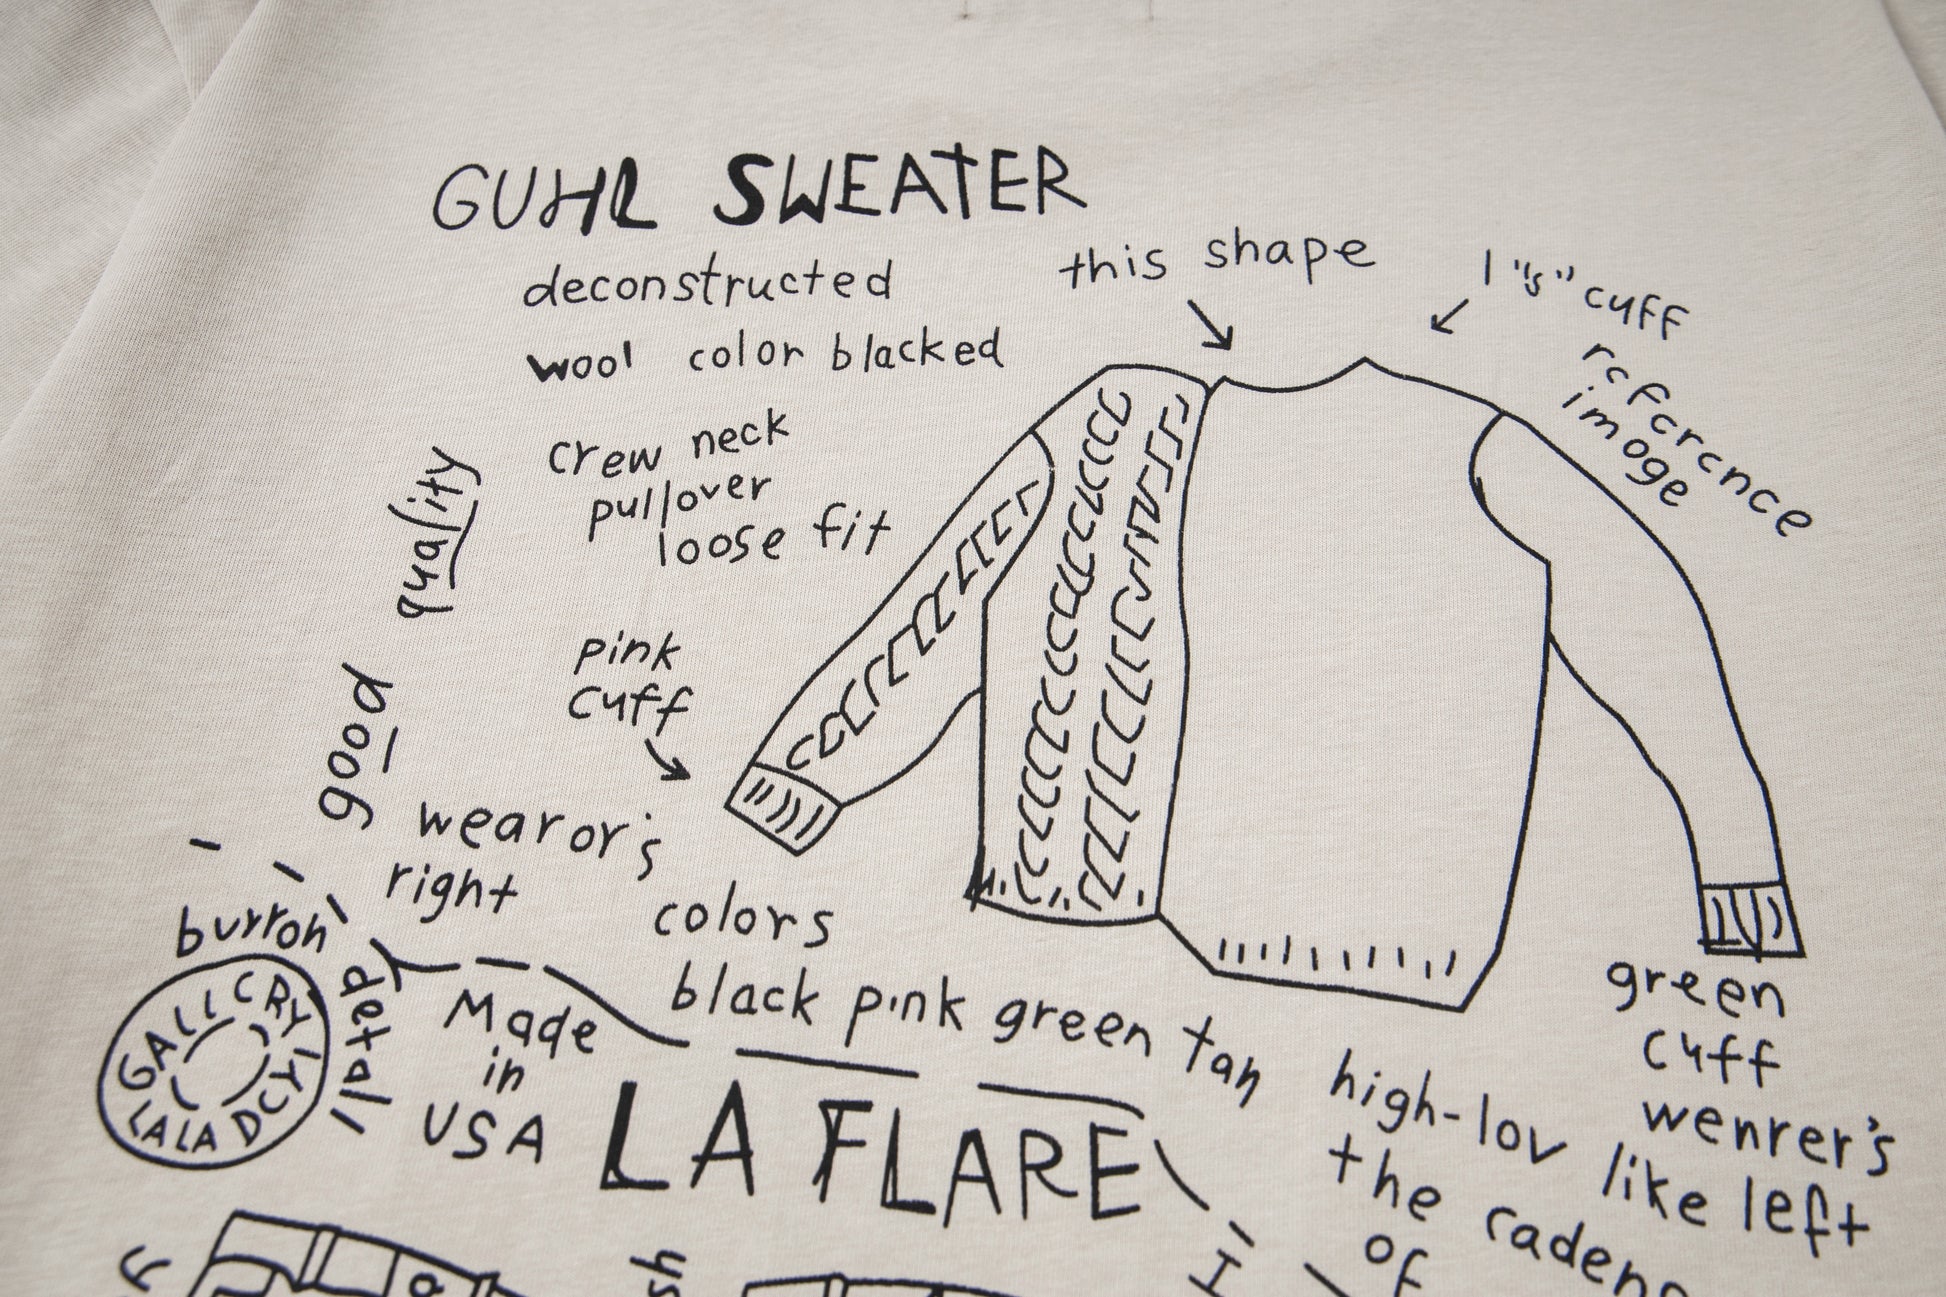 GUHL SWEATER
deconstructed
wool color blacked
crew neck
pullover
loose fit
this shape
cuff
rcfcrcnce
imoge
good quality
pink
cuff
wearor's
right
colors
black pink green tan
burron
detail
GALLCRY
LALA DCYI
Made
in
USA
LA FLARE
green
cuff
wenrer's
left
high-lov like
the
of
I